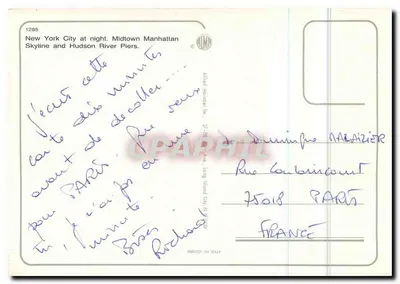 1285
New York City at night. Midtown Manhattan
Skyline and Hudson River Piers.
j'écris cette
carte dix minutes
avant de décoller....
pour PARIS. Que veux
tu, je n'ai pas eu une
minute.
Bises
Richard
Dominique MALAIZIER
Rue Caulaincourt
75018 PARIS
FRANCE
APHIL